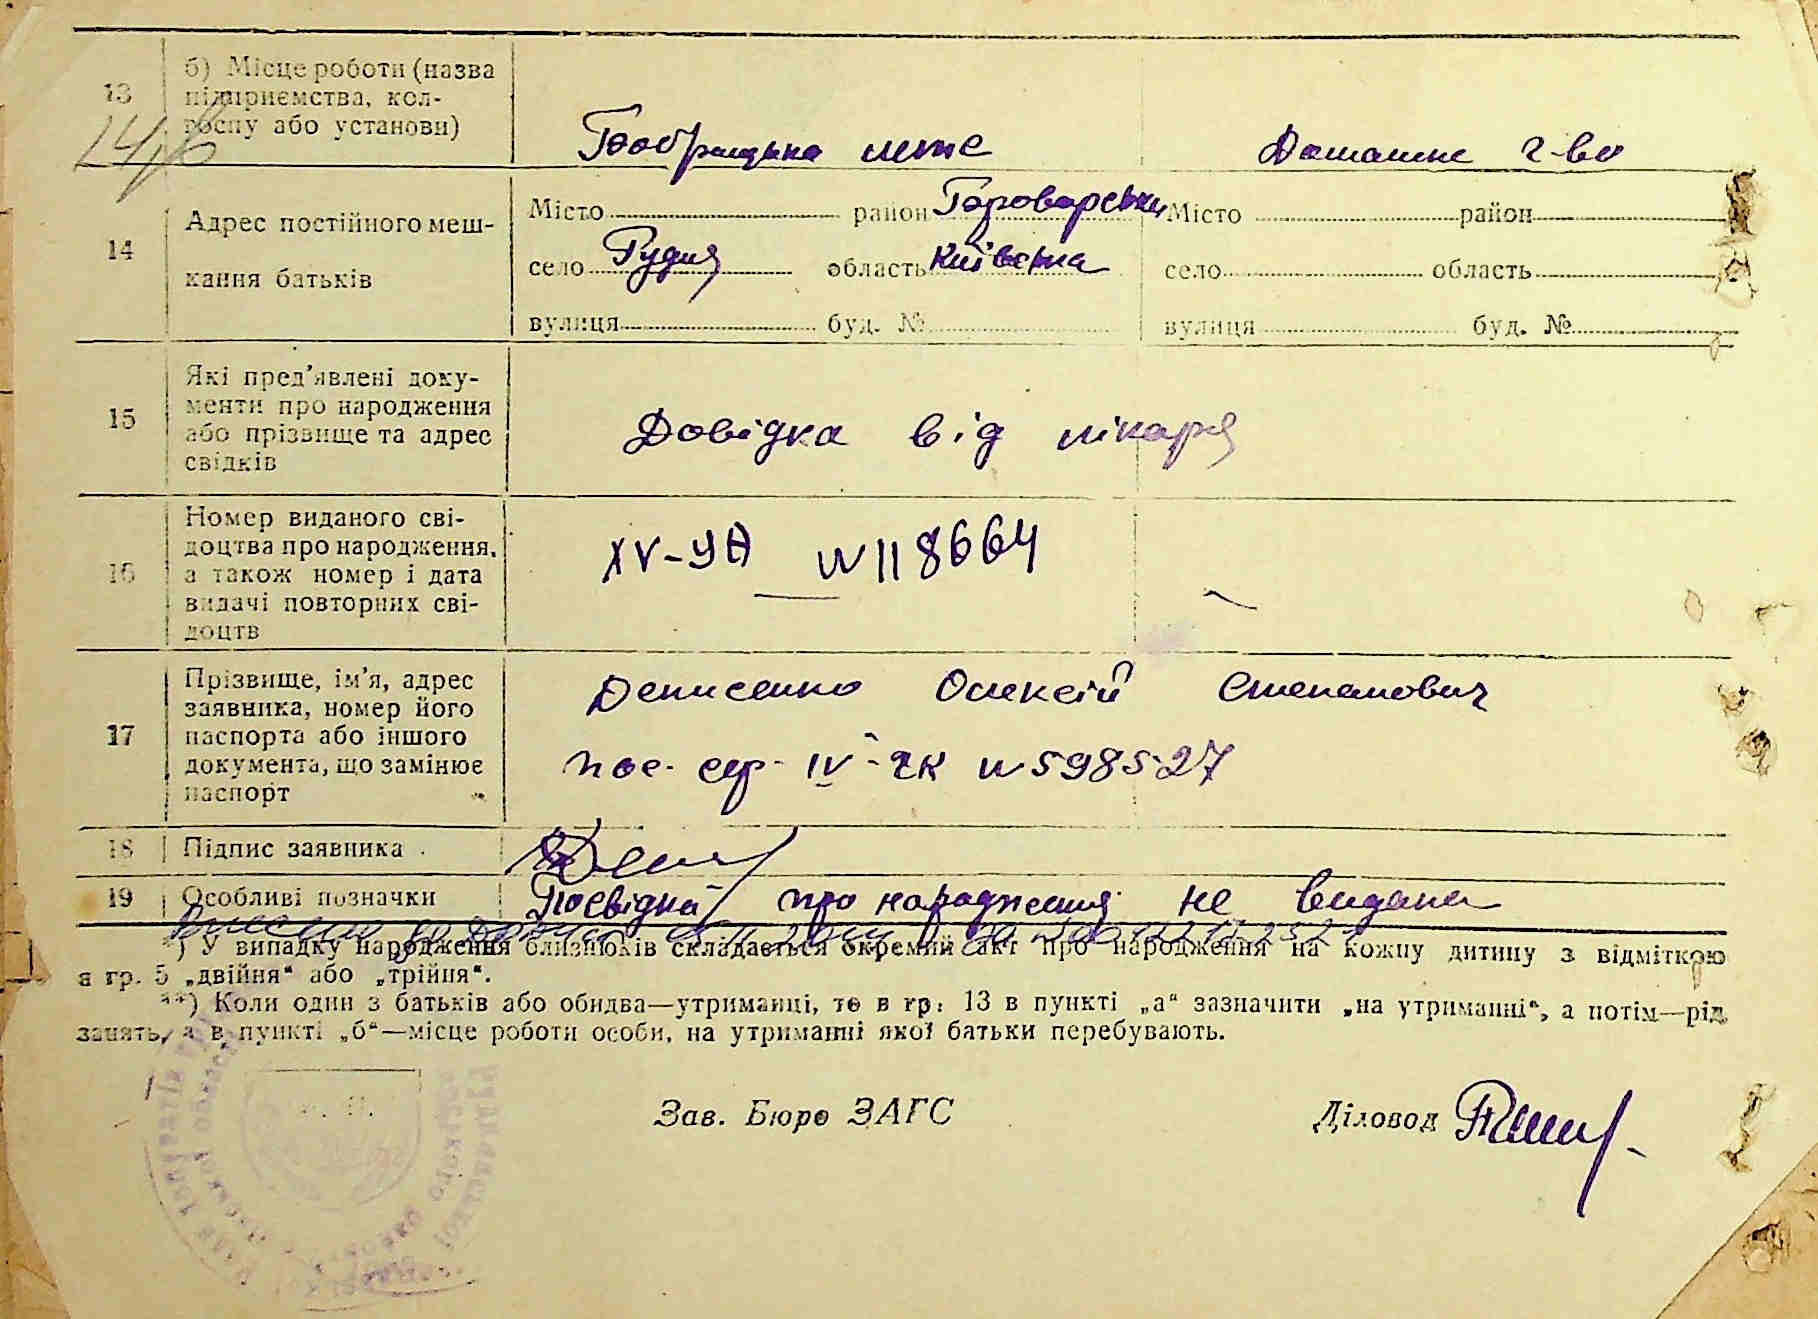 13 б) Місце роботи (назва
підприємства, кол-
госпу або установи)
Домашнє г-во
14 Адрес постійного меш-
кання батьків
Місто район Броварський Місто район
село Рудня область Київська село область
вулиця буд. № вулиця буд. №
15 Які пред'явлені доку-
менти про народження
або прізвище та адрес
свідків
Довідка від лікаря
16 Номер виданого сві-
доцтва про народження,
а також номер і дата
видачі повторних сві-
доцтв
XV-УА № 118664
17 Прізвище, ім'я, адрес
заявника, номер його
паспорта або іншого
документа, що замінює
паспорт
Денисенко Олексій Степанович
пос. сер. IV-ЧК № 598527
18 Підпис заявника
19 Особливі позначки Посвідка про народження не видана
*) У випадку народження близнюків складається окремий акт про народження на кожну дитину з відміткою
в гр. 5 „двійня“ або „трійня“.
**) Коли один з батьків або обидва—утриманці, то в гр. 13 в пункті „а“ зазначити „на утриманні“, а потім—рід
занять, а в пункті „б“—місце роботи особи, на утриманні якої батьки перебувають.
Зав. Бюро ЗАГС Діловод